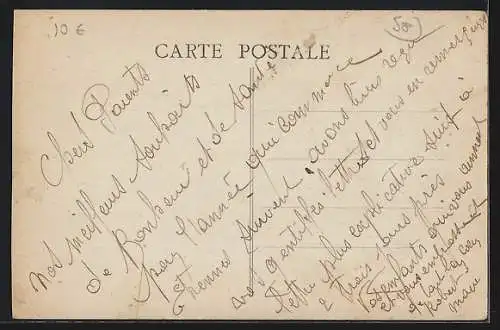 10 €
50
CARTE POSTALE
Chers Parents
Nos meilleurs souhaits
de Bonheur et de santé
pour l'année qui commence
Etrennes suivent, avons tous reçu
vos gentilles lettres et vous en remercions
lettre plus explicative suit à
2 trois jours près
Vos enfants qui vous aiment
et vous embrassent